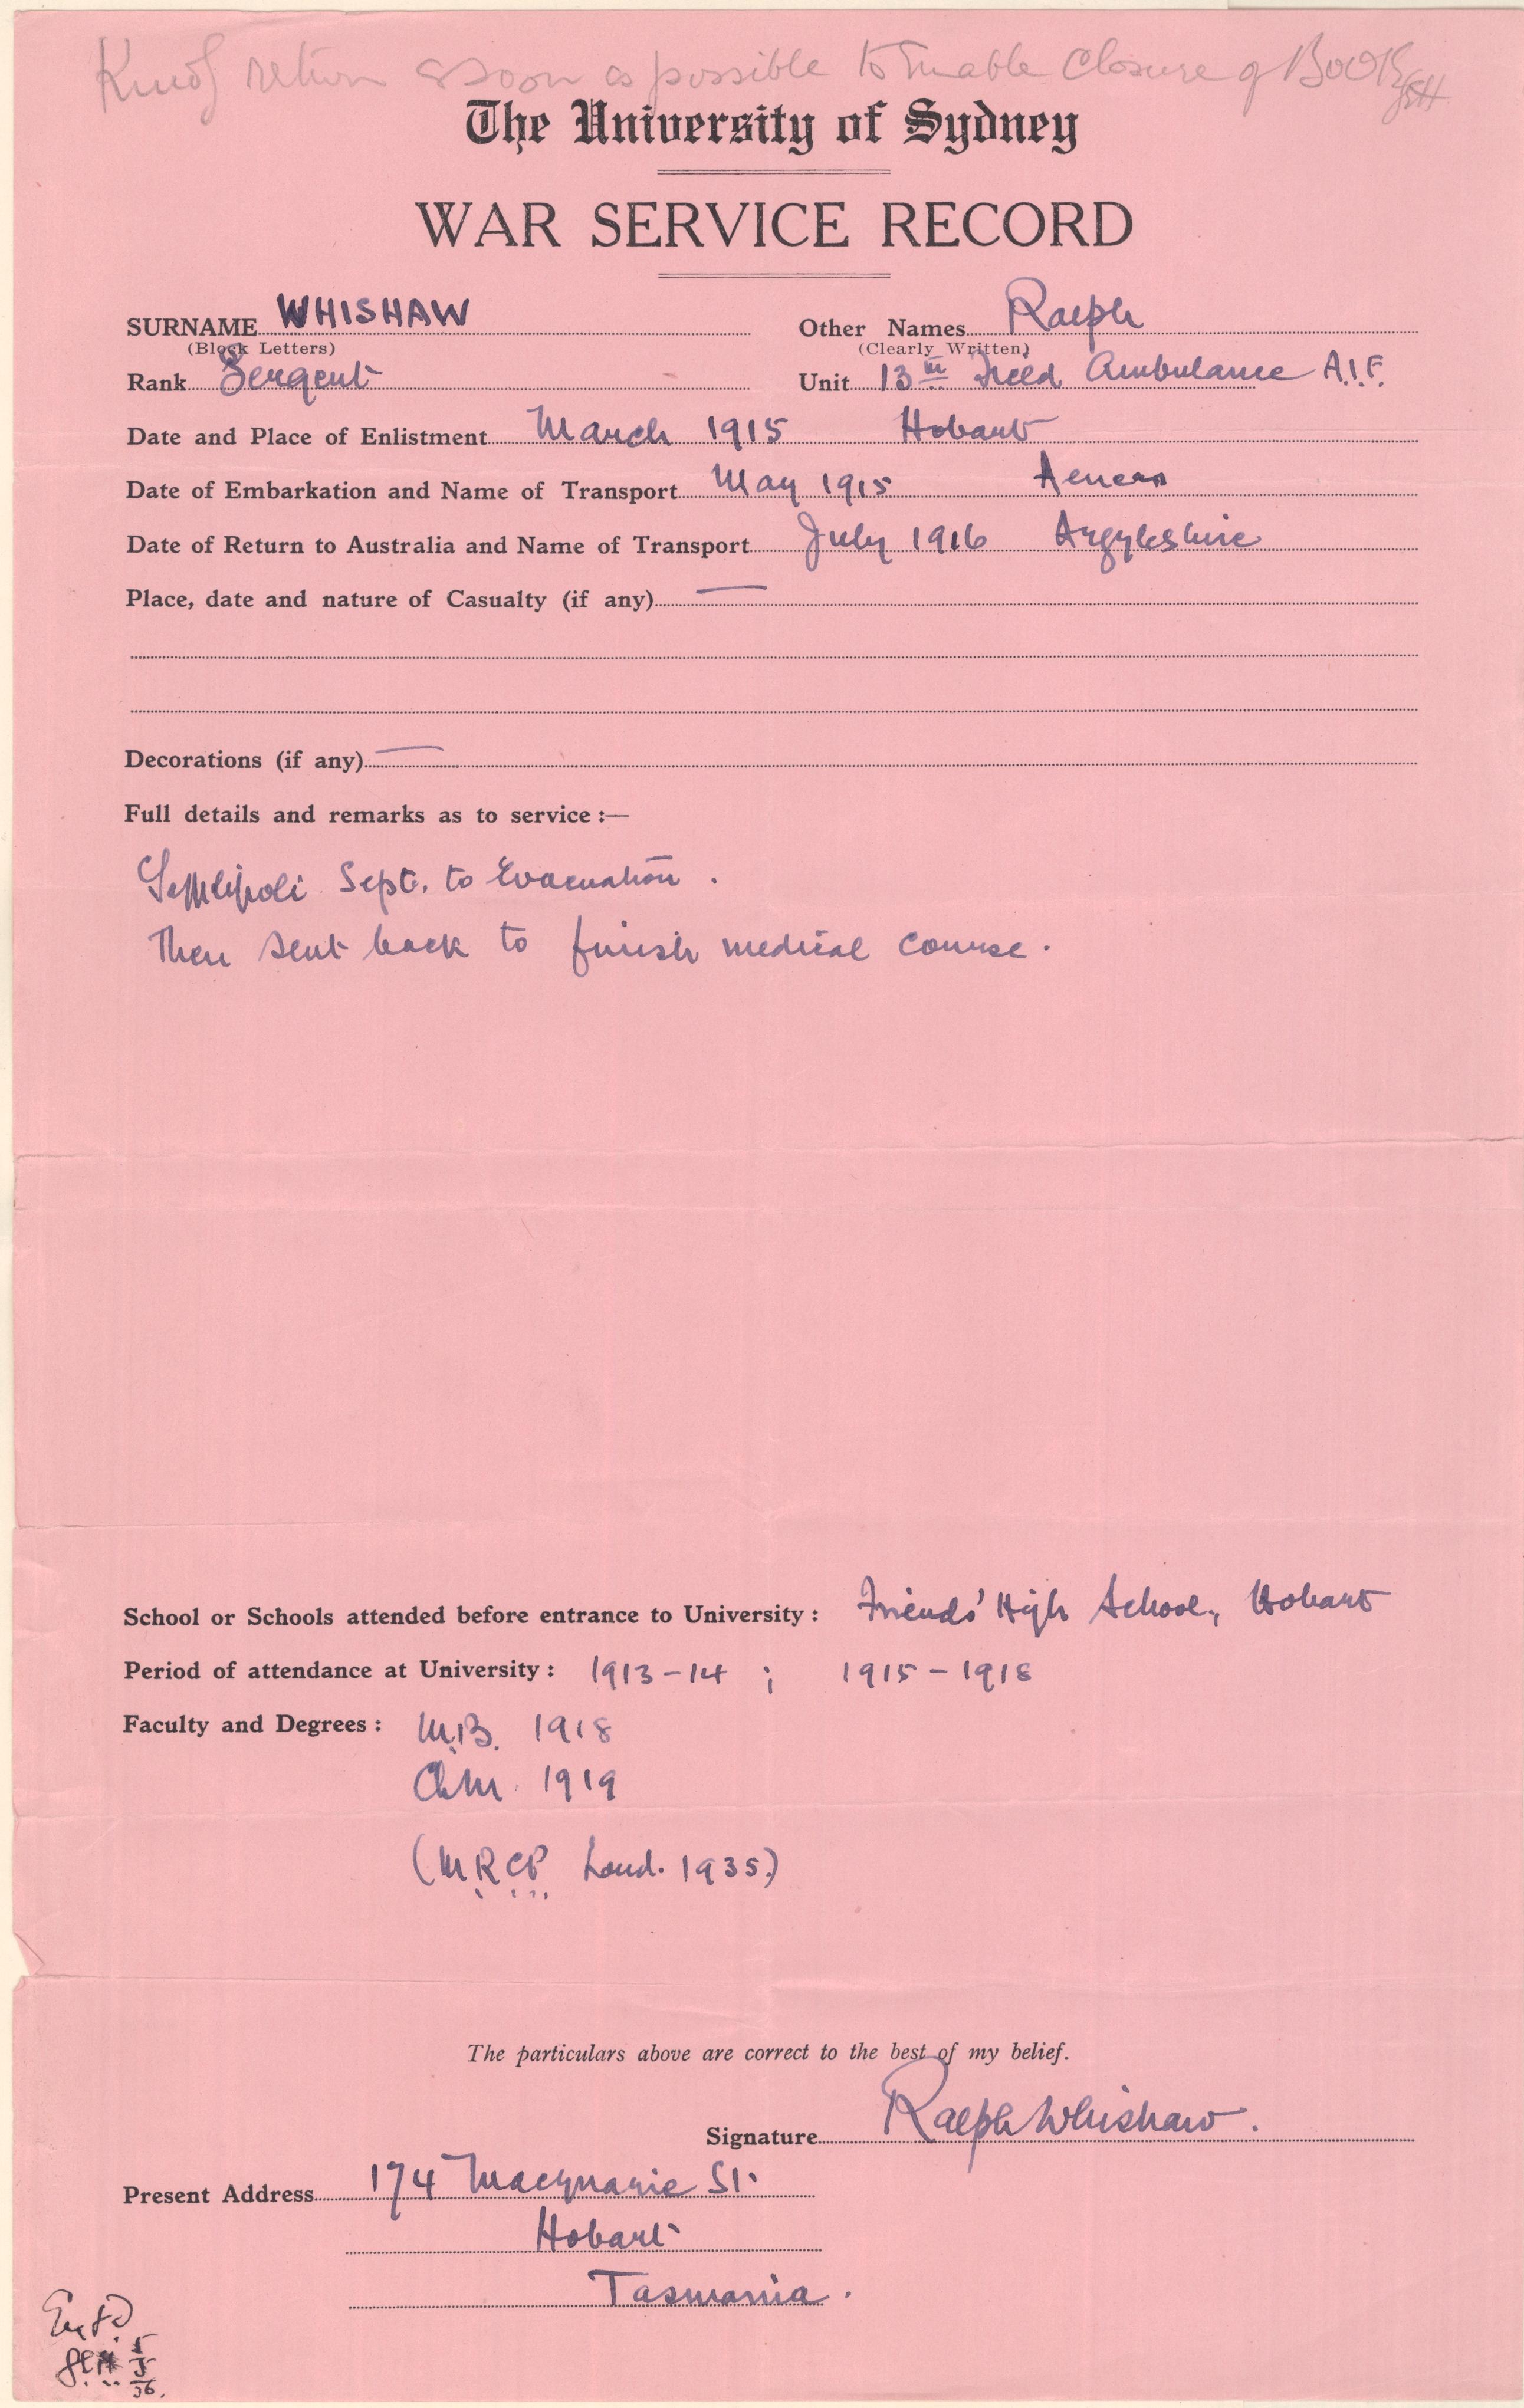 Kindly return as soon as possible to enable closure of Book
The University of Sydney
WAR SERVICE RECORD
SURNAME WHISHAW Other Names Ralph
(Block Letters) (Clearly Written)
Rank Sergent Unit 13th Field Ambulance A.I.F.
Date and Place of Enlistment March 1915 Hobart
Date of Embarkation and Name of Transport May 1915 Aeneas
Date of Return to Australia and Name of Transport July 1916 Argyleshire
Place, date and nature of Casualty (if any) —
Decorations (if any) —
Full details and remarks as to service :—
Gallipoli Sept. to Evacuation.
Then sent back to finish medical course.
School or Schools attended before entrance to University : Friends' High School, Hobart
Period of attendance at University : 1913-14 ; 1915-1918
Faculty and Degrees : M.B. 1918
Ch.M. 1919
(M.R.C.P. Lond. 1935)
The particulars above are correct to the best of my belief.
Signature Ralph Whishaw.
Present Address 174 Macquarie St.
Hobart
Tasmania.
5
5
36.